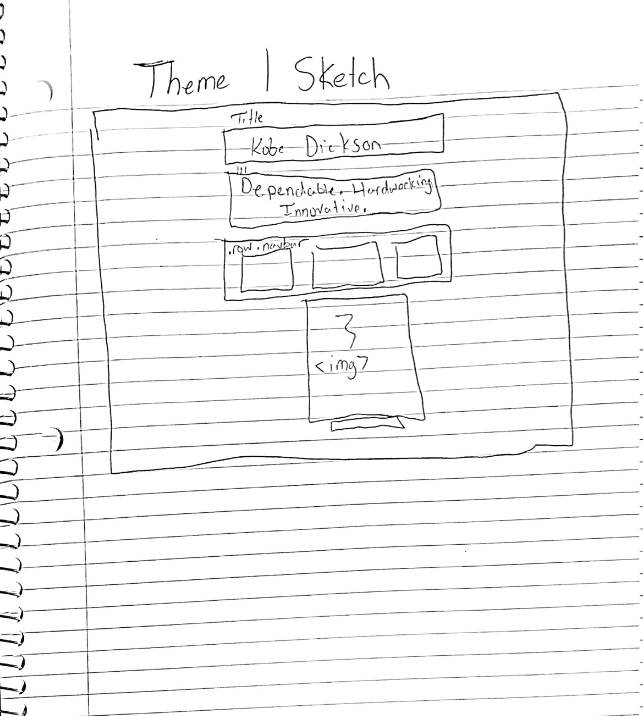 Theme | Sketch
Title
Kobe Dickson
Dependable. Hardworking
Innovative.
.row .navbar
3
<img>